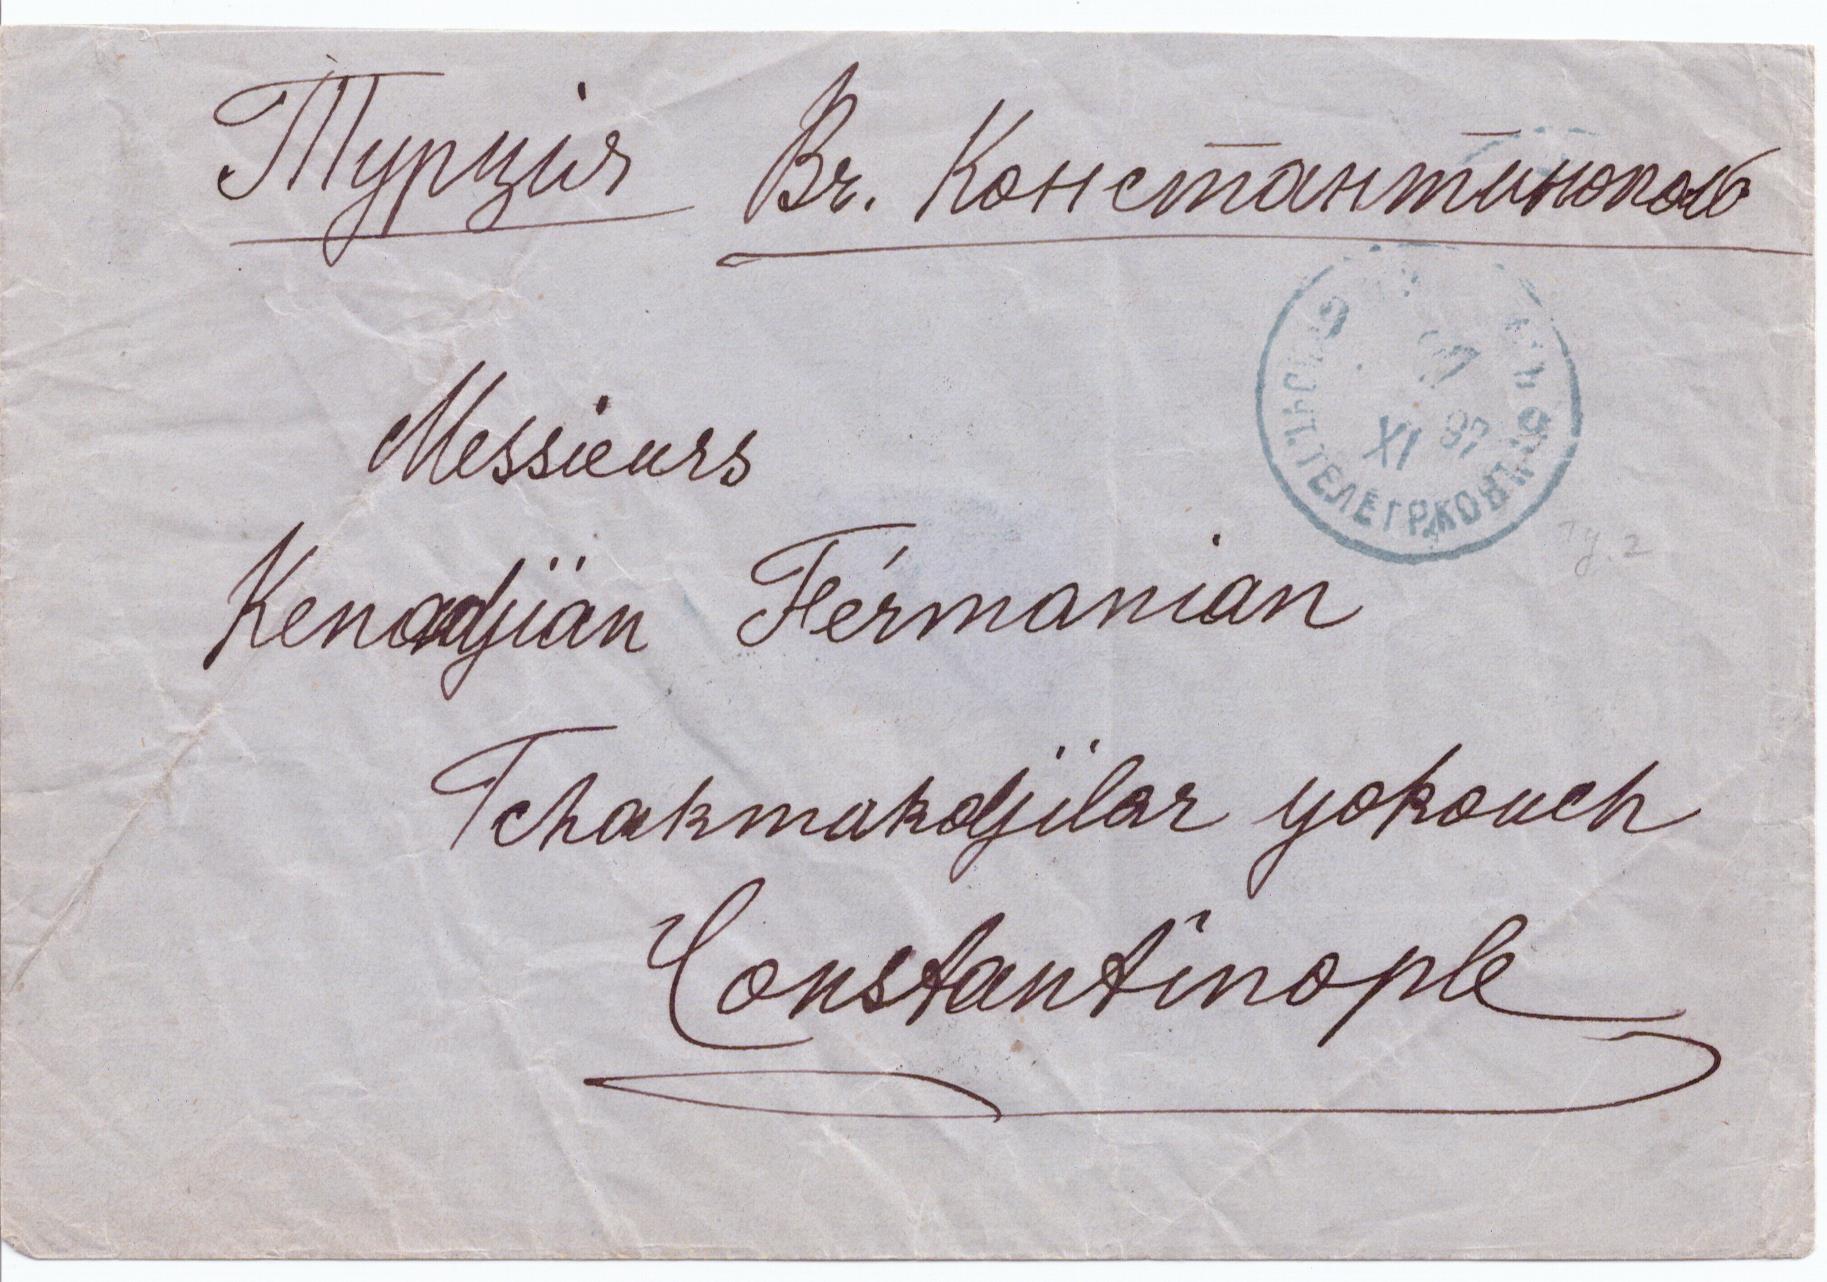 Турція Въ. Константинополь
Messieurs
Kenadjian Férmanian
Tchakmakdjilar yokouch
Constantinople
XI 97
ТЕЛЕГР. КОН.